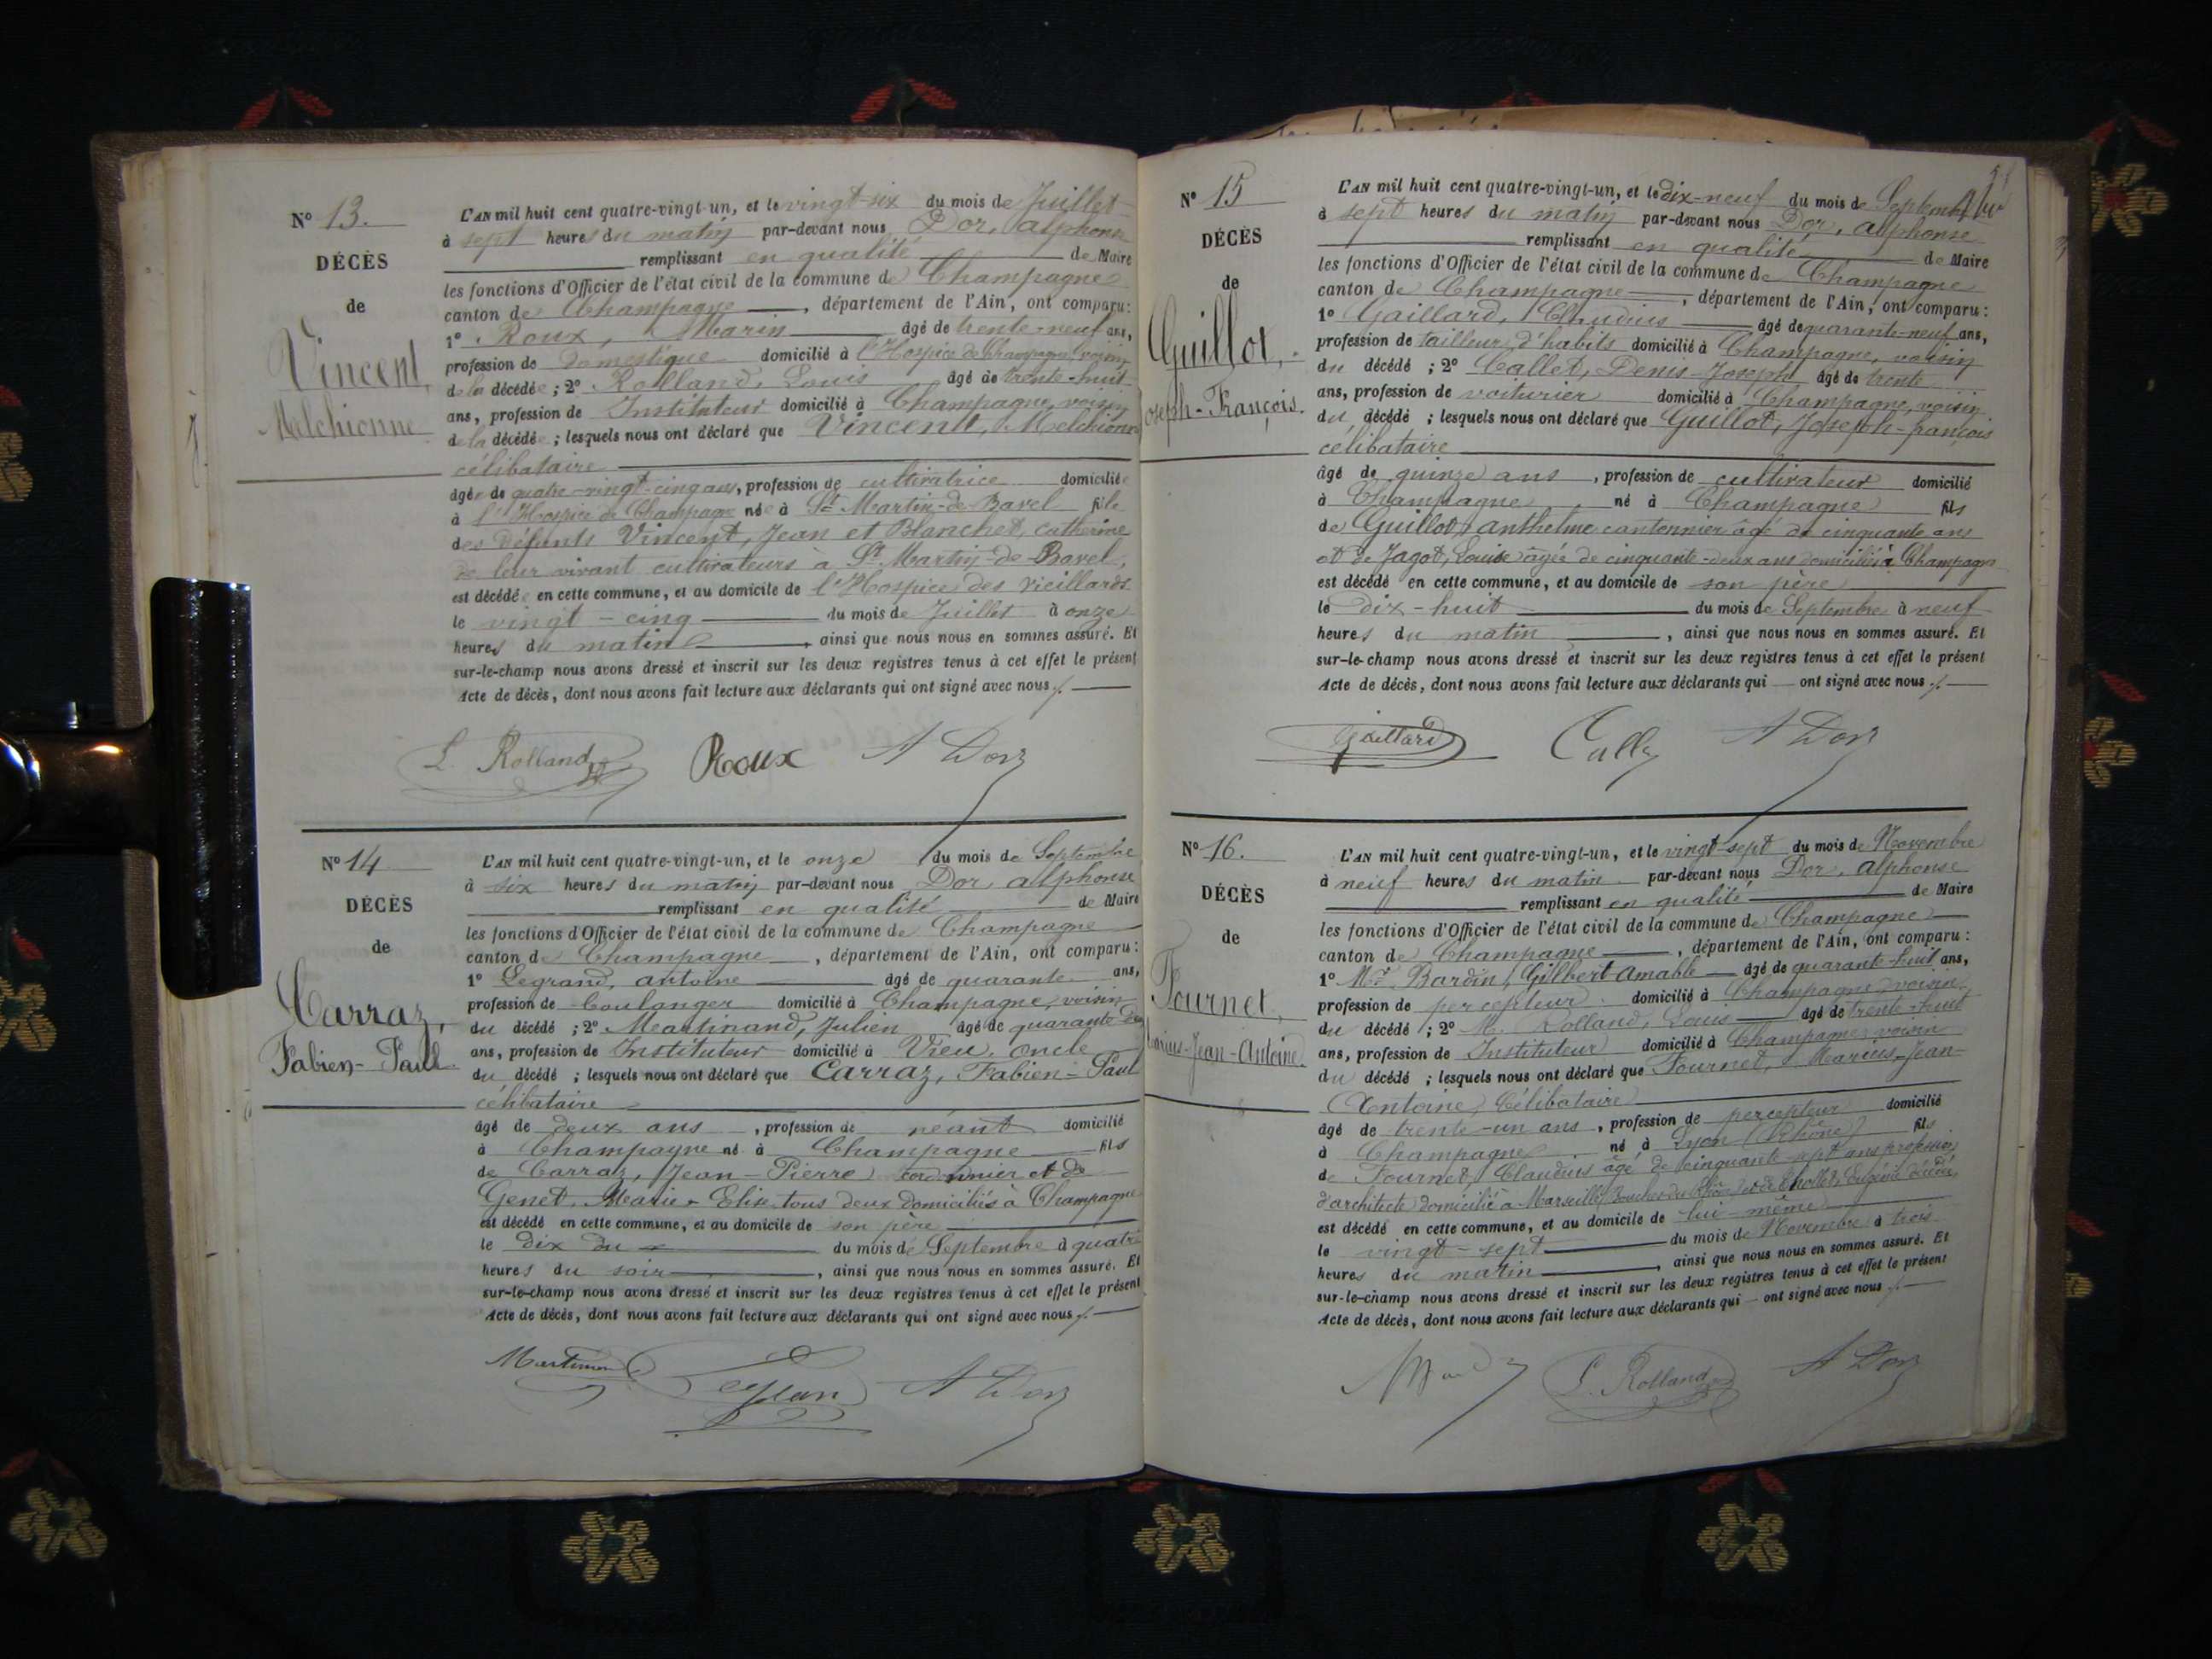 N° 13.
DÉCÈS
de
Vincent,
Melchionne
L'AN mil huit cent quatre-vingt-un, et le vingt-six du mois de Juillet
à sept heures du matin par-devant nous Dor, alphonse
remplissant en qualité de Maire
les fonctions d'Officier de l'état civil de la commune de Champagne
canton de Champagne, département de l'Ain, ont comparu:
1° Roux, Marin âgé de trente-neuf ans,
profession de domestique domicilié à l'Hospice de Champagne voisin
de la décédée; 2° Rolland, Louis âgé de trente-huit
ans, profession de Instituteur domicilié à Champagne, voisin
de la décédée; lesquels nous ont déclaré que Vincent, Melchionne
célibataire
âgée de quatre-vingt-cinq ans, profession de cultivatrice domiciliée
à l'Hospice de Champagne née à St Martin-de-Bavel fille
des défunts Vincent, Jean et Blanchet, Catherine
de leur vivant cultivateurs à St Martin-de-Bavel,
est décédée en cette commune, et au domicile de l'Hospice des vieillards
le vingt-cinq du mois de Juillet à onze
heures du matin, ainsi que nous nous en sommes assuré. Et
sur-le-champ nous avons dressé et inscrit sur les deux registres tenus à cet effet le présent
Acte de décès, dont nous avons fait lecture aux déclarants qui ont signé avec nous
L. Rolland Roux A Dor
N° 14
DÉCÈS
de
Carraz,
Fabien-Paul
L'AN mil huit cent quatre-vingt-un, et le onze du mois de Septembre
à six heures du matin par-devant nous Dor, alphonse
remplissant en qualité de Maire
les fonctions d'Officier de l'état civil de la commune de Champagne
canton de Champagne, département de l'Ain, ont comparu:
1° Legrand, antoine âgé de quarante ans,
profession de boulanger domicilié à Champagne, voisin
du décédé; 2° Martinand, Julien âgé de quarante
ans, profession de Instituteur domicilié à Vieu, oncle
du décédé; lesquels nous ont déclaré que Carraz, Fabien-Paul
célibataire
âgé de deux ans, profession de néant domicilié
à Champagne né à Champagne fils
de Carraz, Jean-Pierre cordonnier et de
Genet, Marie-Elise tous deux domiciliés à Champagne
est décédé en cette commune, et au domicile de son père
le dix du du mois de Septembre à quatre
heures du soir, ainsi que nous nous en sommes assuré. Et
sur-le-champ nous avons dressé et inscrit sur les deux registres tenus à cet effet le présent
Acte de décès, dont nous avons fait lecture aux déclarants qui ont signé avec nous
A Dor
N° 15
DÉCÈS
de
Guillot,
Joseph-François.
L'AN mil huit cent quatre-vingt-un, et le dix-neuf du mois de Septembre
à sept heures du matin par-devant nous Dor, alphonse
remplissant en qualité de Maire
les fonctions d'Officier de l'état civil de la commune de Champagne
canton de Champagne, département de l'Ain, ont comparu:
1° Gaillard, Claudius âgé de quarante-neuf ans,
profession de tailleur d'habits domicilié à Champagne, voisin
du décédé; 2° Callet, Denis-Joseph âgé de trente
ans, profession de voiturier domicilié à Champagne, voisin
du décédé; lesquels nous ont déclaré que Guillot, Joseph-françois
célibataire
âgé de quinze ans, profession de cultivateur domicilié
à Champagne né à Champagne fils
de Guillot, anthelme cantonnier âgé de cinquante ans
et de Jagot, Louise âgée de cinquante-deux ans domiciliés à Champagne
est décédé en cette commune, et au domicile de son père
le dix-huit du mois de Septembre à neuf
heures du matin, ainsi que nous nous en sommes assuré. Et
sur-le-champ nous avons dressé et inscrit sur les deux registres tenus à cet effet le présent
Acte de décès, dont nous avons fait lecture aux déclarants qui ont signé avec nous
Gaillard A Dor
N° 16.
DÉCÈS
de
Fournet,
Marius-Jean-Antoine.
L'AN mil huit cent quatre-vingt-un, et le vingt-sept du mois de Novembre
à neuf heures du matin par-devant nous Dor, alphonse
remplissant en qualité de Maire
les fonctions d'Officier de l'état civil de la commune de Champagne
canton de Champagne, département de l'Ain, ont comparu:
1° Mr Bardin, Gilbert-Amable âgé de quarante-huit ans,
profession de percepteur domicilié à Champagne voisin
du décédé; 2° M. Rolland, Louis âgé de trente-huit
ans, profession de Instituteur domicilié à Champagne voisin
du décédé; lesquels nous ont déclaré que Fournet, Marius-Jean-
Antoine, Célibataire
âgé de trente-un ans, profession de percepteur domicilié
à Champagne né à Lyon (Rhône) fils
de Fournet, Claudius âgé de cinquante-sept ans profession
d'architecte domicilié à Marseille Bouches du Rhône et de Chollet, Eugénie décédée,
est décédé en cette commune, et au domicile de lui-même
le vingt-sept du mois de Novembre à trois
heures du matin, ainsi que nous nous en sommes assuré. Et
sur-le-champ nous avons dressé et inscrit sur les deux registres tenus à cet effet le présent
Acte de décès, dont nous avons fait lecture aux déclarants qui ont signé avec nous
L. Rolland A Dor